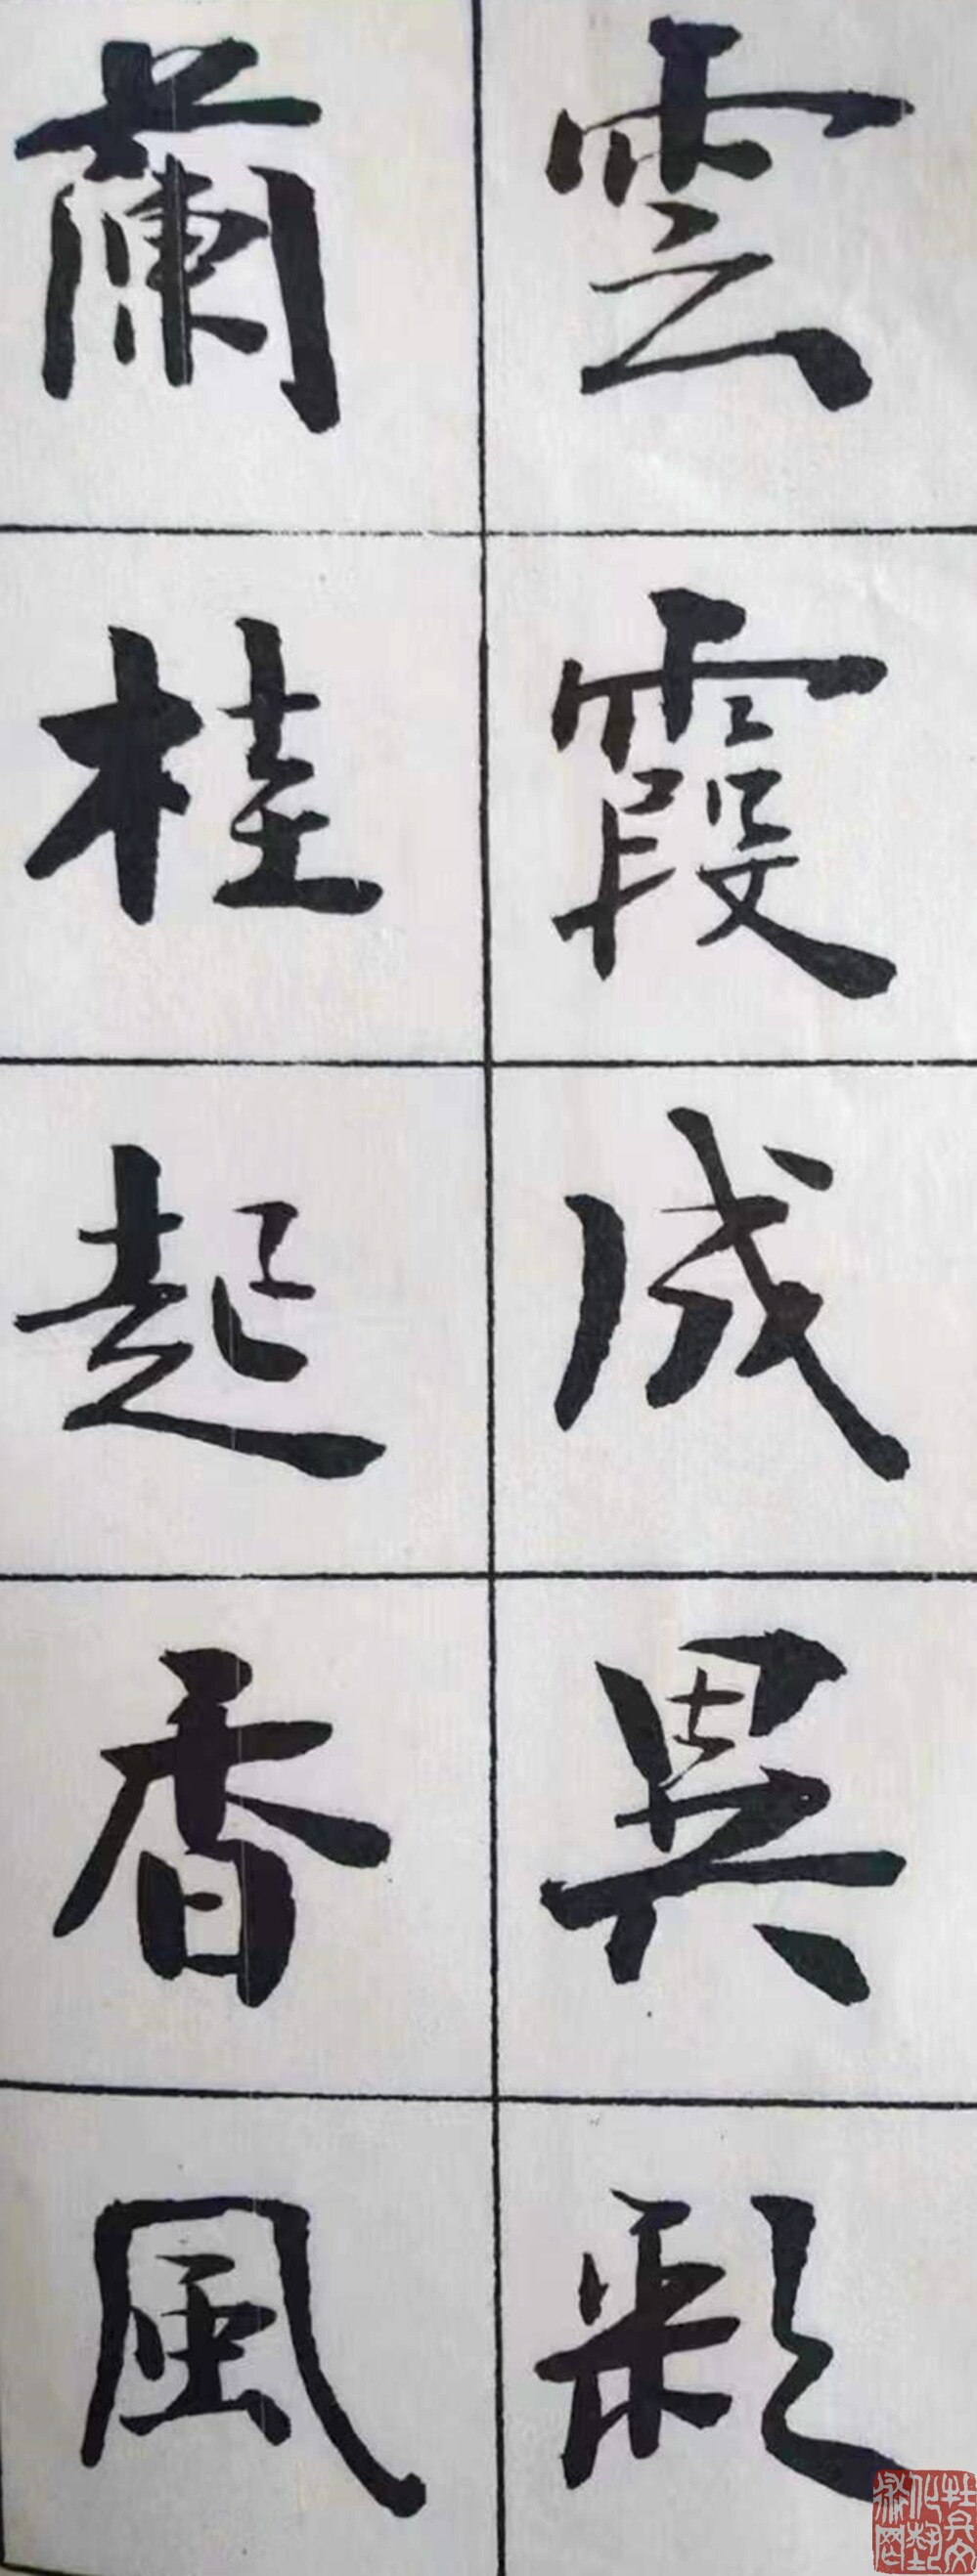 雲霞成異彩
蘭桂起香風